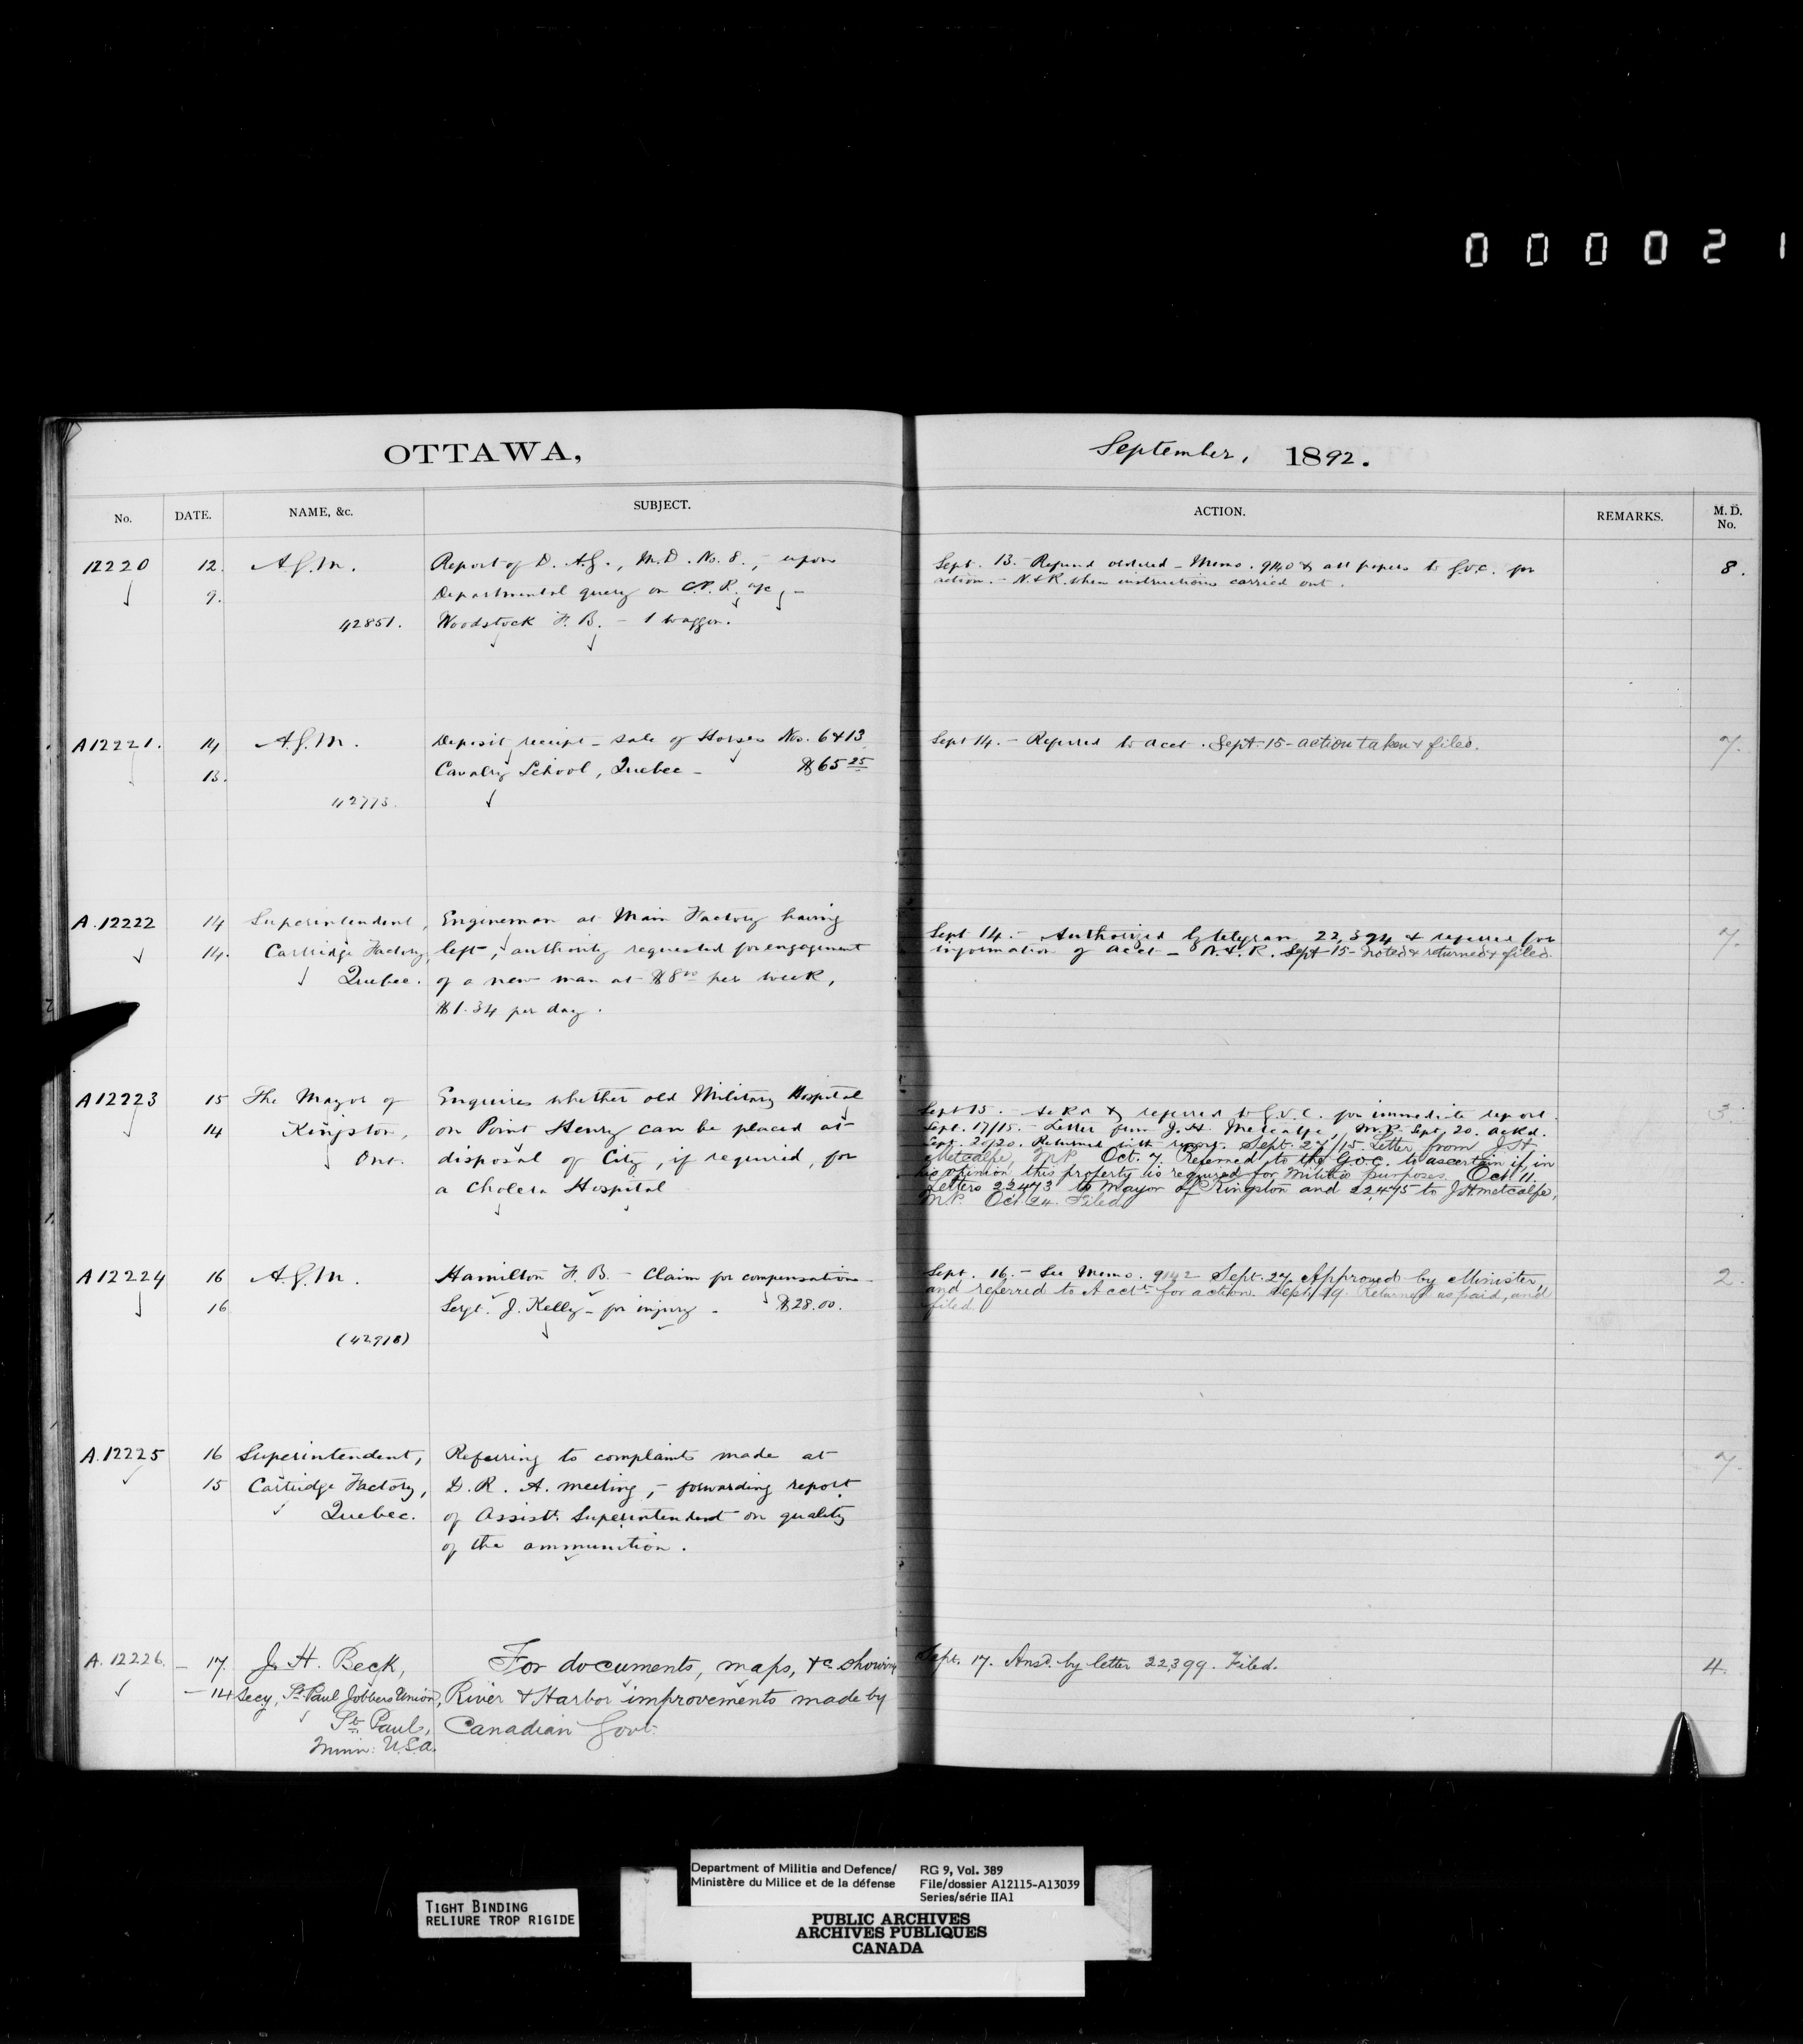 000021
OTTAWA,
September, 1892.
No.
DATE.
NAME, &c.
SUBJECT.
ACTION.
REMARKS.
M. D.
No.
12220
12.
9.
A.G.M.
42851.
Report of D.A.G., M.D. No. 8., - upon
Departmental query on C.P.R. a/c, -
Woodstock F. B. - 1 waggon.
Sept. 13. - Refund ordered - Memo. 9140 & all papers to G.O.C. for
action. - N.&R. when instructions carried out.
8.
A12221.
14
13.
A.G.M.
Deposit receipt - sale of Horses Nos. 6 & 13
Cavalry School, Quebec - $65 25
Sept 14. - Referred to Acct. Sept. 15 - action taken & filed.
7.
A.12222
14
14.
Superintendent,
Cartridge Factory,
Quebec.
Engineman at Main Factory having
left, authority requested for engagement
of a new man at $8 00 per week,
$1.34 per day.
Sept 14. - Authorized by telegram 22,394 & referred for
information of Acct - N.&.R. Sept 15 - noted & returned & filed.
7.
A12223
15
14
The Mayor of
Kingston,
Ont.
Enquires whether old Military Hospital
on Point Henry can be placed at
disposal of City, if required, for
a Cholera Hospital
Sept 15. - Ackd & referred to G.O.C. for immediate report.
Sept. 17/15. - Letter from J.H. Metcalfe, M.P. Sept. 20. ackd.
Sept. 20/20. Returned with report. Sept. 27/15. Letter from J H
Metcalfe, M.P. Oct. 7 Referred to the G.O.C. to ascertain if, in
his opinion this property is required for Militia purposes. Oct. 11.
Letters 22473 to Mayor of Kingston and 22,475 to J.H. Metcalfe,
M.P. Oct. 24. Filed.
3
A12224
16
16
A.G.M.
(42918)
Hamilton F. B. - Claim for compensation -
Sergt. J. Kelly - for injury - $28.00.
Sept. 16. - See Memo. 9142 Sept. 27 Approved by Minister,
and referred to Acct. for action. Returned as paid, and
filed.
2.
A.12225
16
15
Superintendent,
Cartridge Factory,
Quebec.
Referring to complaints made at
D. R. A. meeting, - forwarding report
of Assistt. Superintendent on quality
of the ammunition.
7.
A. 12226.
- 17.
- 14
J. H. Beck,
Secy, St. Paul Jobbers Union,
St. Paul,
Minn: U.S.A.
For documents, maps, &c showing
River & Harbor improvements made by
Canadian Govt.
Sept. 17. Ansd. by letter 22,399. Filed.
4.
TIGHT BINDING
RELIURE TROP RIGIDE
Department of Militia and Defence/
Ministère du Milice et de la défense
RG 9, Vol. 389
File/dossier A12115-A13039
Series/série IIA1
PUBLIC ARCHIVES
ARCHIVES PUBLIQUES
CANADA